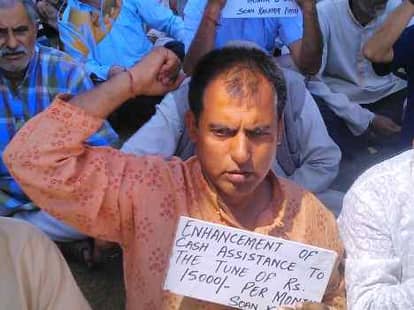 SOAN KASHMIR FRONT
ENHANCEMENT OF
CASH ASSISTANCE TO
THE TUNE OF RS.
15000/- PER MONTH
SOAN K